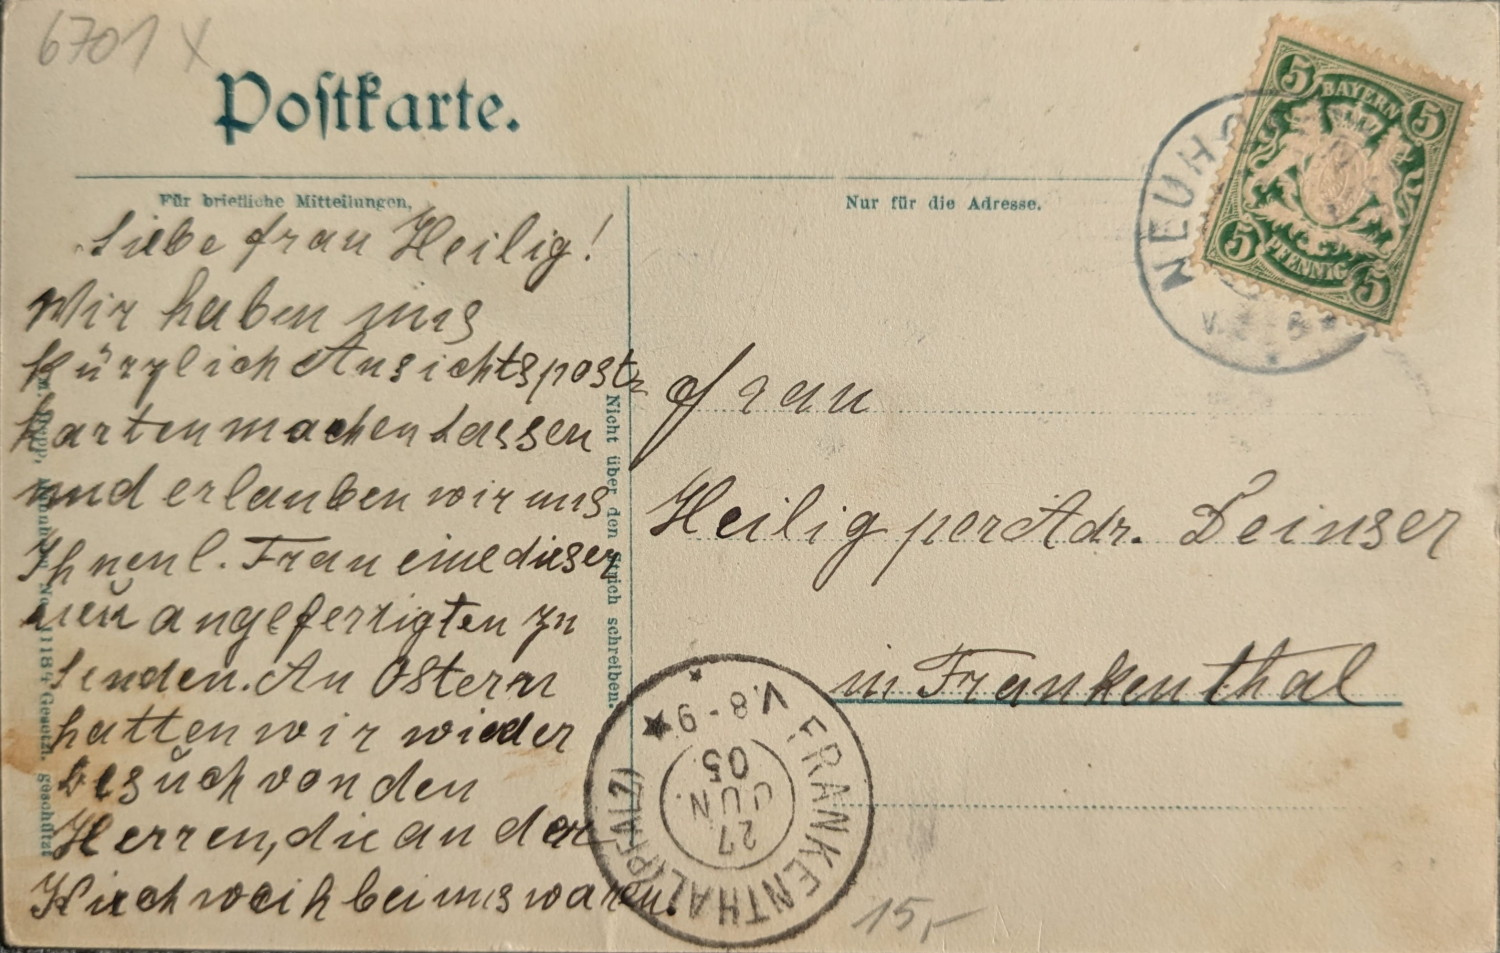 6701 X
Postkarte.
Für briefliche Mitteilungen,
Nur für die Adresse.
BAYERN
5 5
5 5
PFENNIG
NEUHO
Liebe Frau Heilig!
Wir haben uns
kürzlich Ansichtspost=
karten machen lassen
und erlauben wir uns
Ihnen l. Frau eine dieser
neu angefertigten zu
senden. An Ostern
hatten wir wieder
besuch von den
Herren, die an der
Kirchweih bei uns waren.
Nicht über den Strich schreiben.
No. 1184 Gesetzl. geschützt
Frau
Heilig per Adr. Deinser
in Frankenthal
FRANKENTHAL (PFALZ)
V. 8-9
27
JUN.
05
15,-